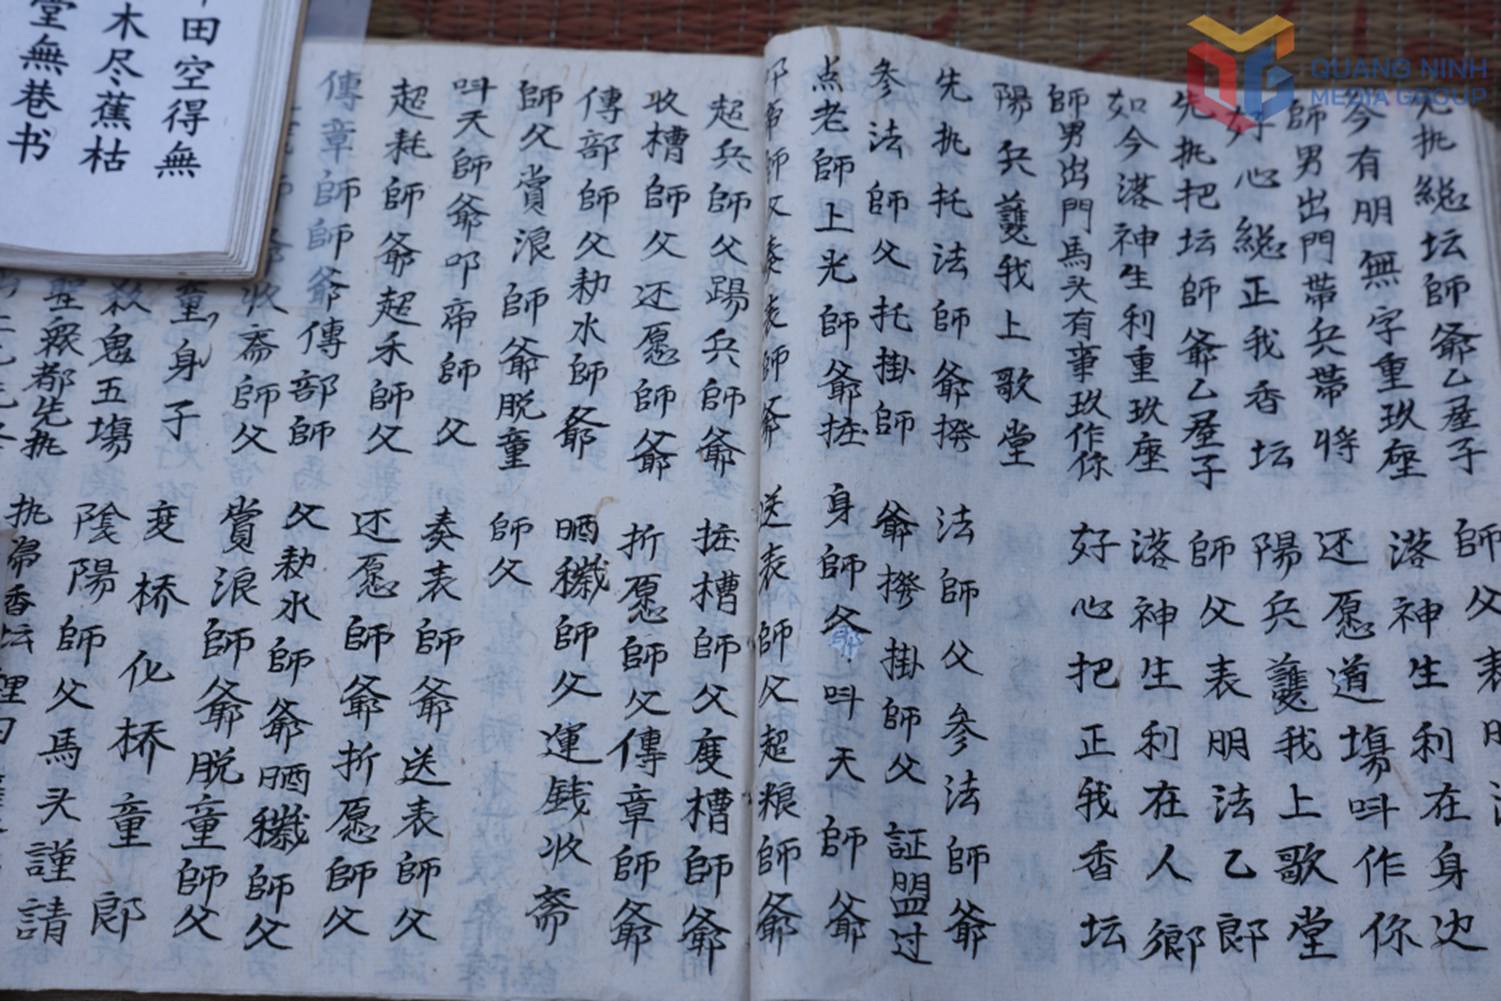 QUANG NINH
MEDIA GROUP
先执總坛師爺乙屋子
師父表明法
今有朋無字重玖座
落神生利在身边
師男出門帶兵帶將
还愿道場呌作你
好心總正我香坛
陽兵護我上歌堂
先执把坛師爺乙屋子
師父表明法乙郎
如今落神生利重玖座
落神生利在人鄉
師男出門馬头有事玖作你
好心把正我香坛
陽兵護我上歌堂
先执托法師爺撥
法師父参法師爺
参法師父托掛師
爺撥掛師父証盟过
点老師上光師爺拄
身師父呌天師爺
叩帝師父奏表師爺
送表師父超粮師爺
超兵師父踢兵師爺
拄槽師父度槽師爺
收槽師父还愿師爺
折愿師父傳章師爺
傳部師父勅水師爺
晒穢師父運銭收斋
師父賞浪師爺脱童
師父
呌天師爺叩帝師父
奏表師爺送表師父
超耗師爺超禾師父
还愿師爺折愿師父
傳章師師爺傳部師
父勅水師爺晒穢師父
收斋師父
賞浪師爺脱童師父
童身子
变桥化桥童郎
殺鬼五塲
陰陽師父馬头謹請
聖眾都先执
执常香坛
田空得無
木尽蕉枯
堂無巷书